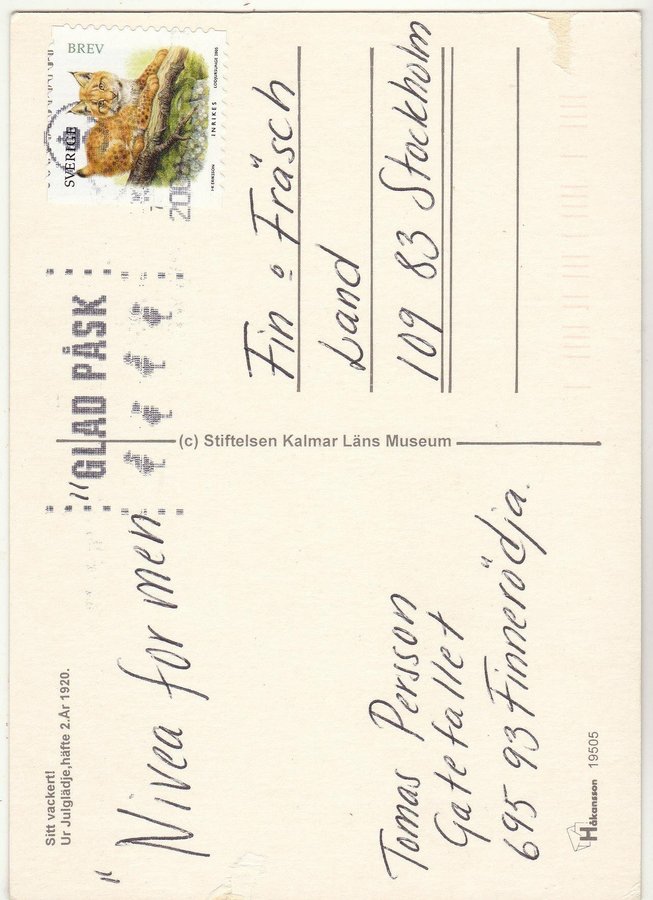 Sitt vackert!
Ur Julglädje,häfte 2.År 1920.
"Nivea for men"
Tomas Persson
Gatefallet
695 93 Finnerödja.
Håkansson 19505
(c) Stiftelsen Kalmar Läns Museum
GLAD PÅSK
BREV
SVERIGE
INRIKES
Fin o Fräsch
Land
109 83 Stockholm